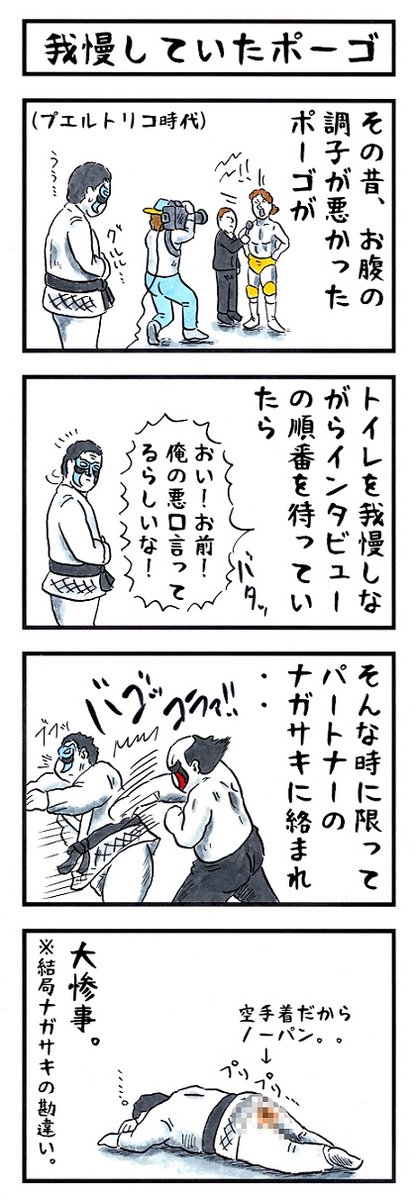 我慢していたポーゴ
その昔、お腹の
調子が悪かった
ポーゴが
(プエルトリコ時代)
うぅ…
グルルル…
トイレを我慢しな
がらインタビュー
の順番を待ってい
たら
バタッ
おい!お前!
俺の悪口言って
るらしいな!
そんな時に限って
パートナーの
ナガサキに絡まれ
・・・
コラァ!!
バゴッ
ブブッ
大惨事。
※結局ナガサキの勘違い。
空手着だから
ノーパン。。
↓
プリプリ…